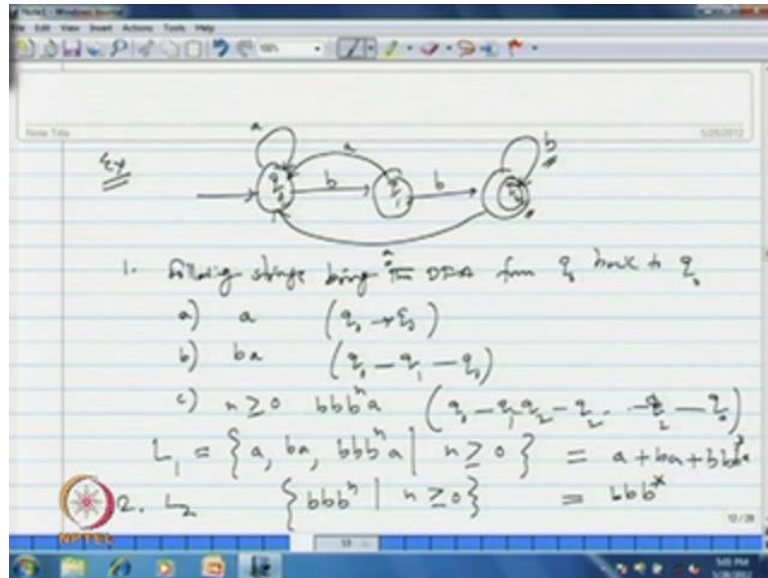 Note1 - Windows Journal
File Edit View Insert Actions Tools Help
Note Title
5/28/2012
Ex
a
a
b
q0
b
q1
b
q2
a
1. Following strings bring the DFA from q0 back to q0
a) a (q0 → q0)
b) ba (q0 - q1 - q0)
c) n ≥ 0 bbb^n a (q0 - q1 q2 - q2 . - q2 - q0)
L1 = { a, ba, bbb^n a | n ≥ 0 } = a + ba + bbb*a
2. L2 { bbb^n | n ≥ 0 } = bbb*
NPTEL
12/28
13
5:01 PM
5/28/2012